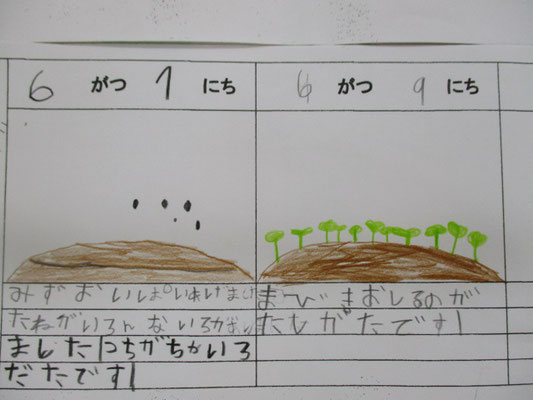 6 がつ 1 にち
みずおいっぱいあげました
たねがいろんないろがあり
ましたつちがちゃいろ
だたです!
6 がつ 9 にち
まびきおしるのが
たしがたです!